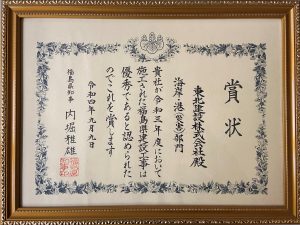 賞状
東北建設株式会社殿
海岸・港(災害)部門
貴社が令和三年度において
施工された福島県建設工事は
優秀であると認められた
のでこれを賞します
令和四年九月九日
福島県知事 内堀雅雄